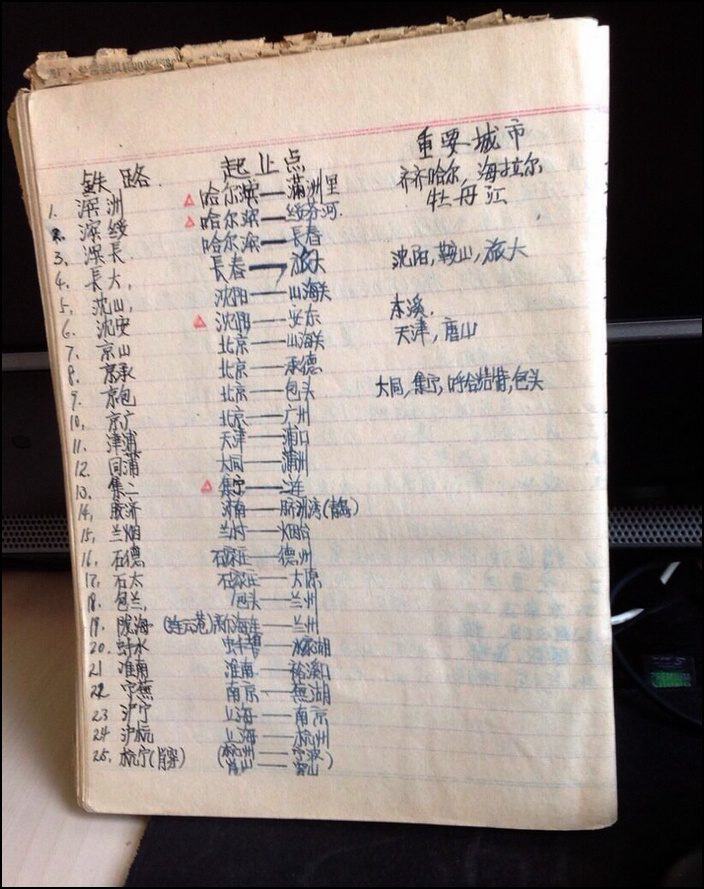 重要城市
铁路 起止点 齐齐哈尔, 海拉尔
1. 滨洲 △ 哈尔滨—满洲里 牡丹江
2. 滨绥 △ 哈尔滨—绥芬河.
3. 滨長. 哈尔滨—長春
4. 長大, 長春—旅大 沈阳, 鞍山, 旅大
5. 沈山, 沈阳—山海关
6. 沈安 △ 沈阳—安东 本溪.
7. 京山 北京—山海关 天津, 唐山
8. 京承 北京—承德
9. 京包 北京—包头 大同, 集宁, 呼和浩特, 包头
10. 京广 北京—广州
11. 津浦 天津—浦口
12. 同蒲 大同—蒲州
13. 集二 △ 集宁—二连
14. 胶济 济南—胶洲湾(青岛)
15. 兰烟 兰村—烟台
16. 石德 石家庄—德州
17. 石太 石家庄—太原
18. 包兰 包头—兰州
19. 陇海 (连云港)新海连—兰州
20. 蚌水 蚌埠—水家湖
21 淮南 淮南—裕溪口
22 宁芜 南京—芜湖
23 沪宁 上海—南京
24 沪杭 上海—杭州
25. 杭宁(肖穿) (杭州—宁波
肖山—穿山)